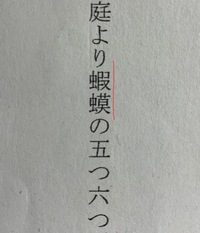 庭より蝦蟆の五つ六つ